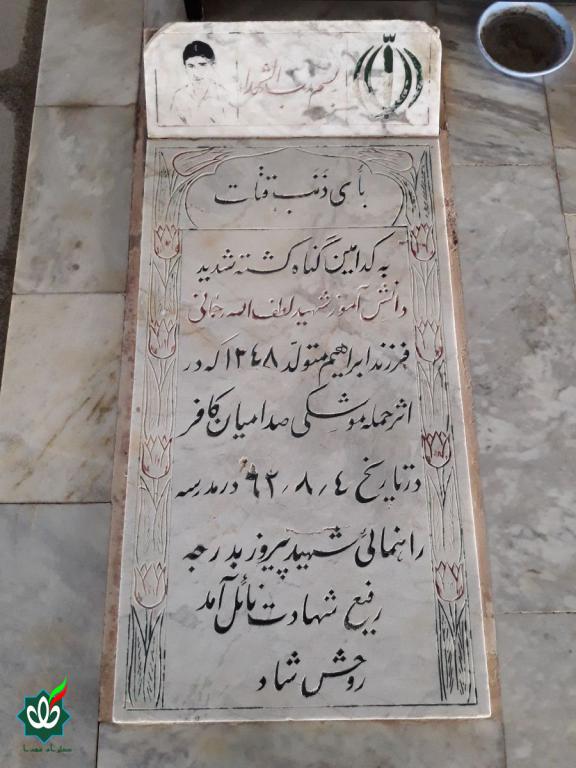 بسم رب الشهدا
بأی ذنب قتلت
به کدامین گناه کشته شدید
دانش آموز شهید لطف الله رجائی
فرزند ابراهیم متولد ۱۳۴۸ که در
اثر حمله موشکی صدامیان کافر
در تاریخ ۴٫۸٫۶۲ در مدرسه
راهنمائی شهید پیروز بدرجه
رفیع شهادت نائل آمد
روحش شاد